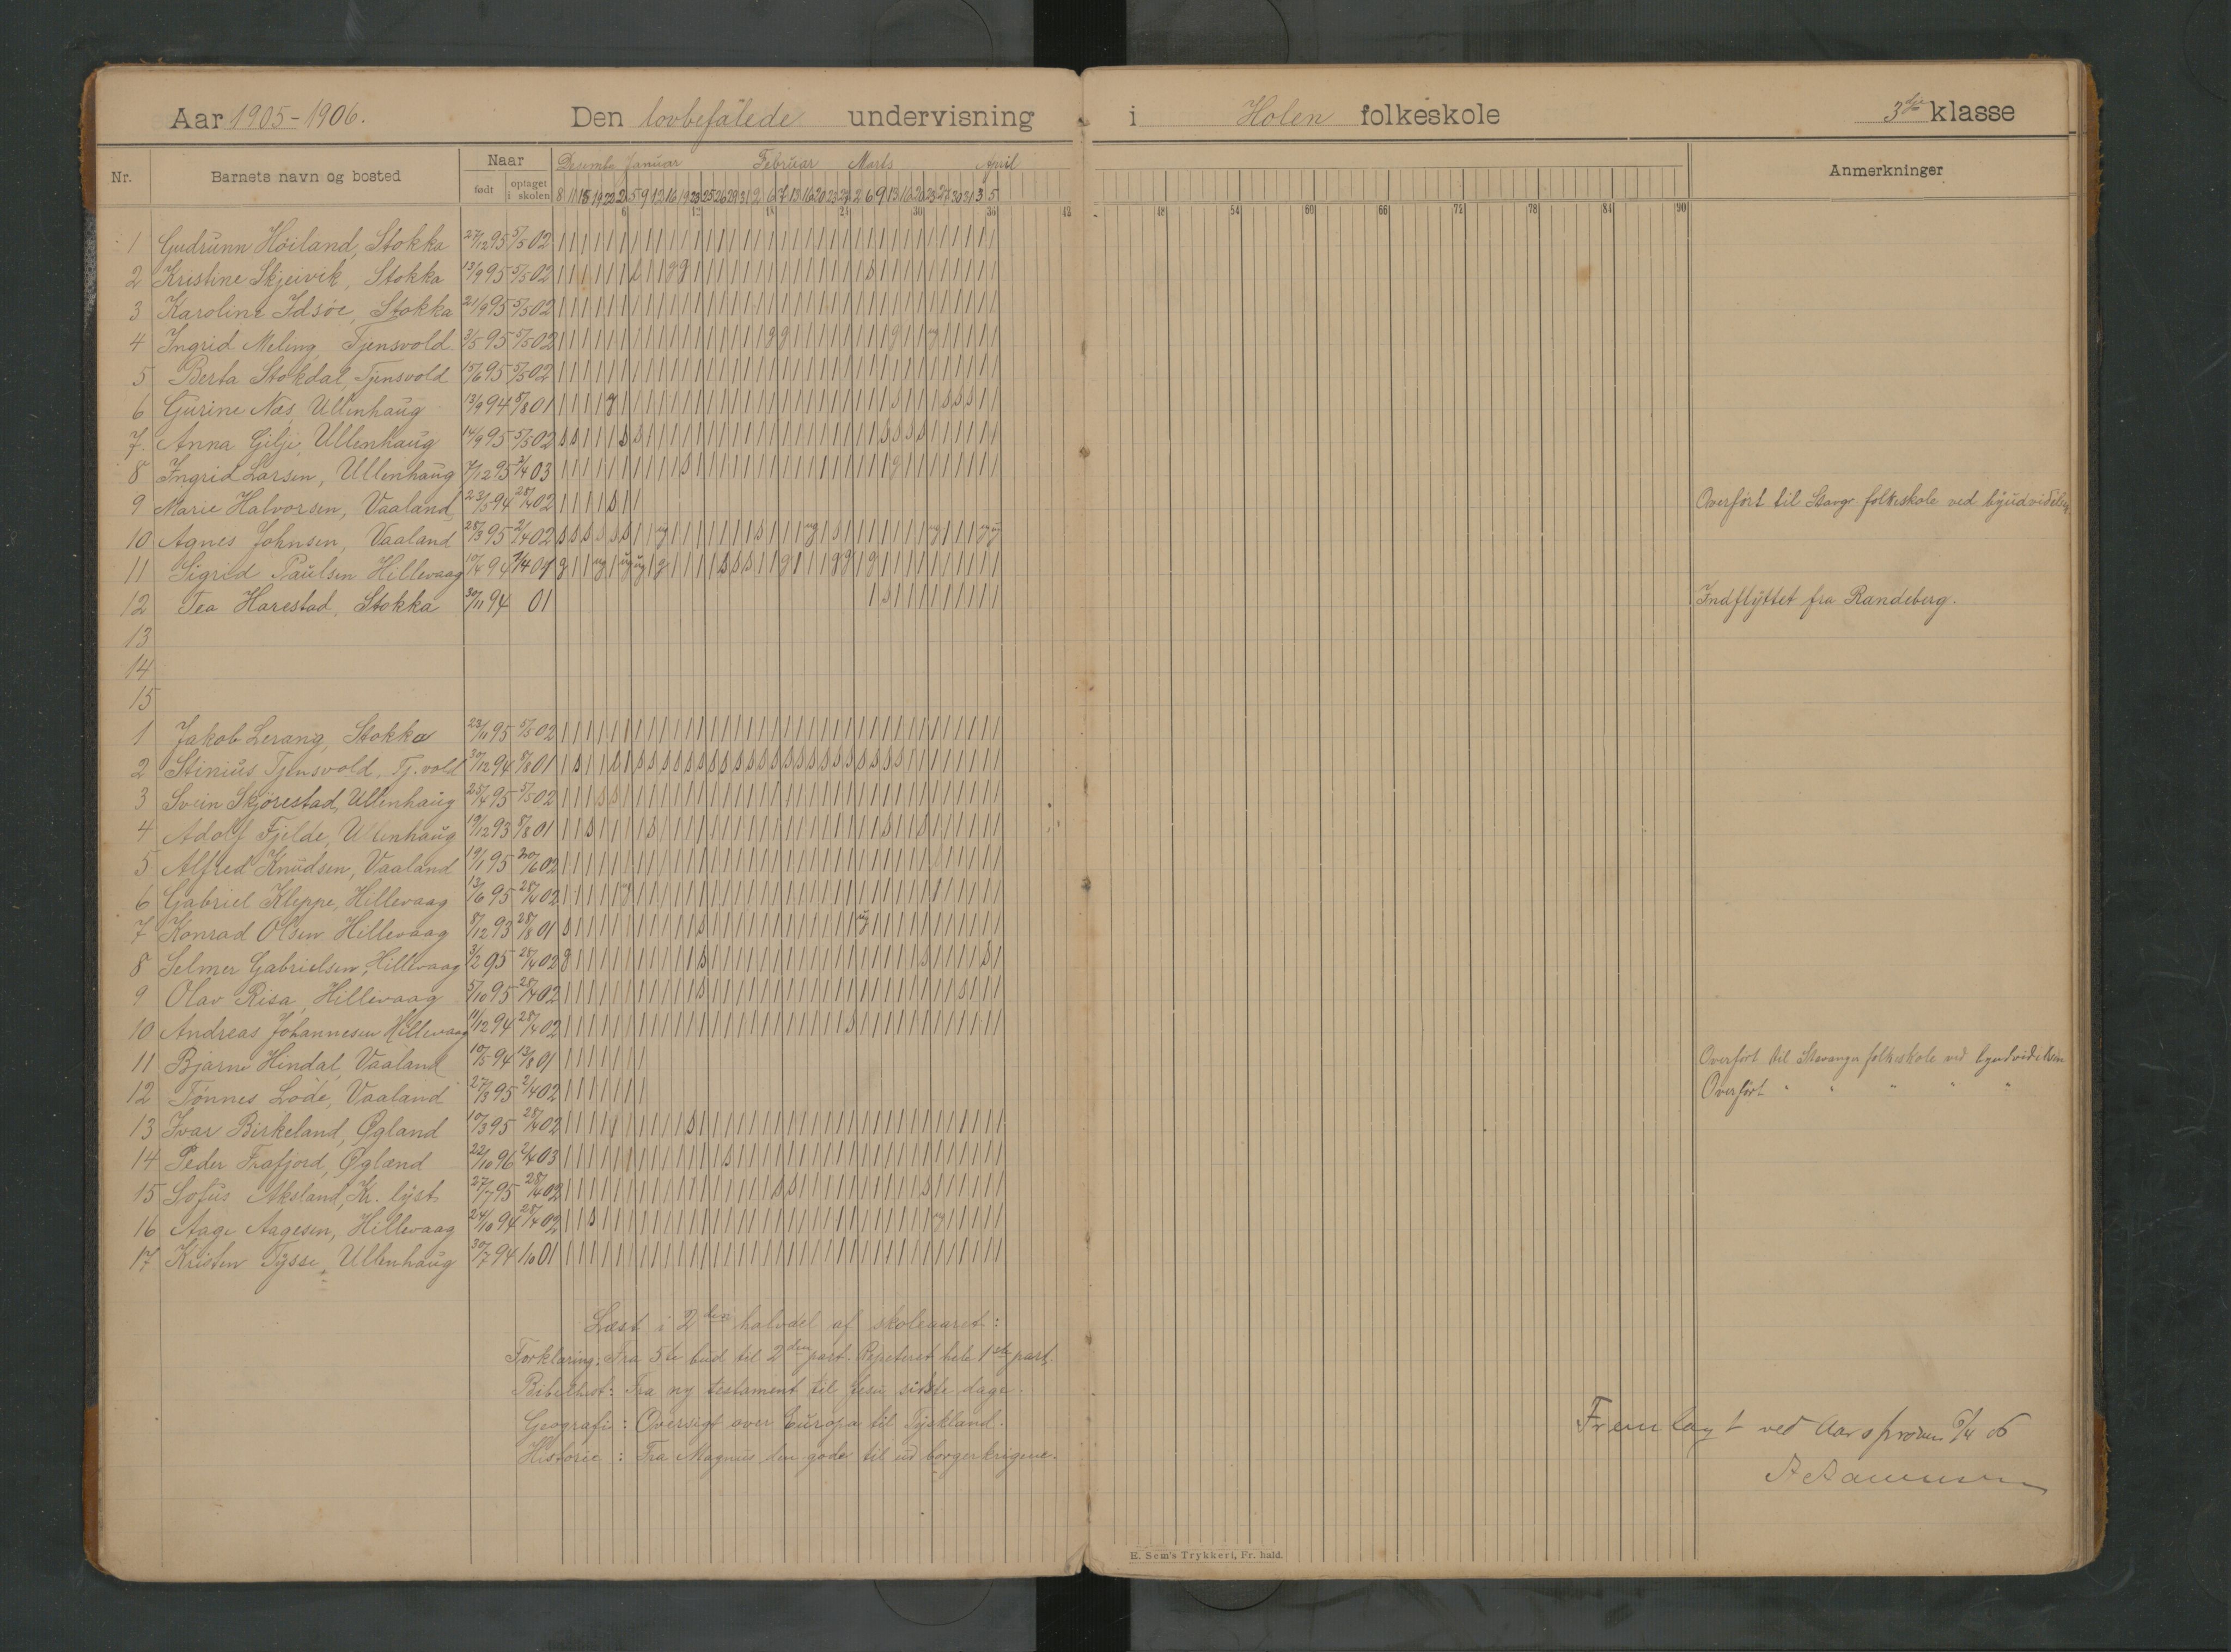 Aar 1905-1906. Den lovbefalede undervisning i Holen folkeskole 3die klasse
Nr. Barnets navn og bosted Naar født optaget i skolen Desembe Januar Februar Marts April Anmerkninger
6 12 18 24 30 36 42 48 54 60 66 72 78 84 90
1 Gudrunn Høiland, Stokka 27/12 95 5/5 02
2 Kristine Skjeivik, Stokka 13/9 95 5/5 02
3 Karoline Idsøe, Stokka 21/9 95 5/5 02
4 Ingrid Meling Tjensvold 3/5 95 5/5 02
5 Berta Stokdal, Tjensvold 15/6 95 5/5 02
6 Gurine Næs Ullenhaug 13/9 94 5/8 01
7. Anna Gilje, Ullenhaug 14/9 95 5/5 02
8 Ingrid Larsen, Ullenhaug 7/12 95 2/4 03
9 Marie Halvorsen, Vaaland 23/5 94 28/4 02 Overført til Stavgr folkeskole ved byudvidelsen
10 Agnes Johnsen, Vaaland 28/3 95 2/4 02
11 Sigrid Paulsen Hillevaag 94 01
12 Tea Harestad, Stokka 30/11 94 01 Indflyttet fra Randeberg.
13
14
15
1 Jakob Lerang, Stokka 23/11 95 5/5 02
2 Stinius Tjensvold, Tj.vold 30/12 94 5/8 01
3 Svein Skjørestad, Ullenhaug 25/4 95 5/5 02
4 Adolf Fjelde, Ullenhaug 19/12 93 8/8 01
5 Alfred Knudsen, Vaaland 19/1 95 20/6 02
6 Gabriel Kleppe, Hillevaag 13/6 95 28/4 02
7 Konrad Olsen Hillevaag 8/12 93 28/8 01
8 Selmer Gabrielsen, Hillevaag 3/2 95 28/4 02
9 Olav Risa, Hillevaag 5/10 95 28/4 02
10 Andreas Johannesen Hillevaag 11/12 94 28/4 02
11 Bjarne Hindal, Vaaland 10/5 94 13/8 01 Overført til Stavanger folkeskole ved byudvidelsen
12 Tønnes Løde, Vaaland 27/3 95 2/4 02 Overført " " " " "
13 Ivar Birkeland, Øgland 10/3 95 28/4 02
14 Peder Frafjord, Øgland 22/10 96 2/4 03
15 Sofus Aksland, Kr. lyst 27/7 95 28/4 02
16 Aage Aagesen, Hillevaag 24/10 94 28/4 02
17 Kristen Tysse, Ullenhaug 30/7 94 1/10 01
Læst i 2den halvdel af skoleaaret:
Forklaring: Fra 5te bud til 2den part. Repeteret hele 1ste part.
Bibelhist: Fra ny testament til Jesu sidste dage.
Geografi: Oversigt over Europa til Tyskland.
Historie: Fra Magnus den gode til ud borgerkrigene.
Fremlagt ved Aarsprøven 6/4 06
E. Sem's Trykkeri, Fr. hald.